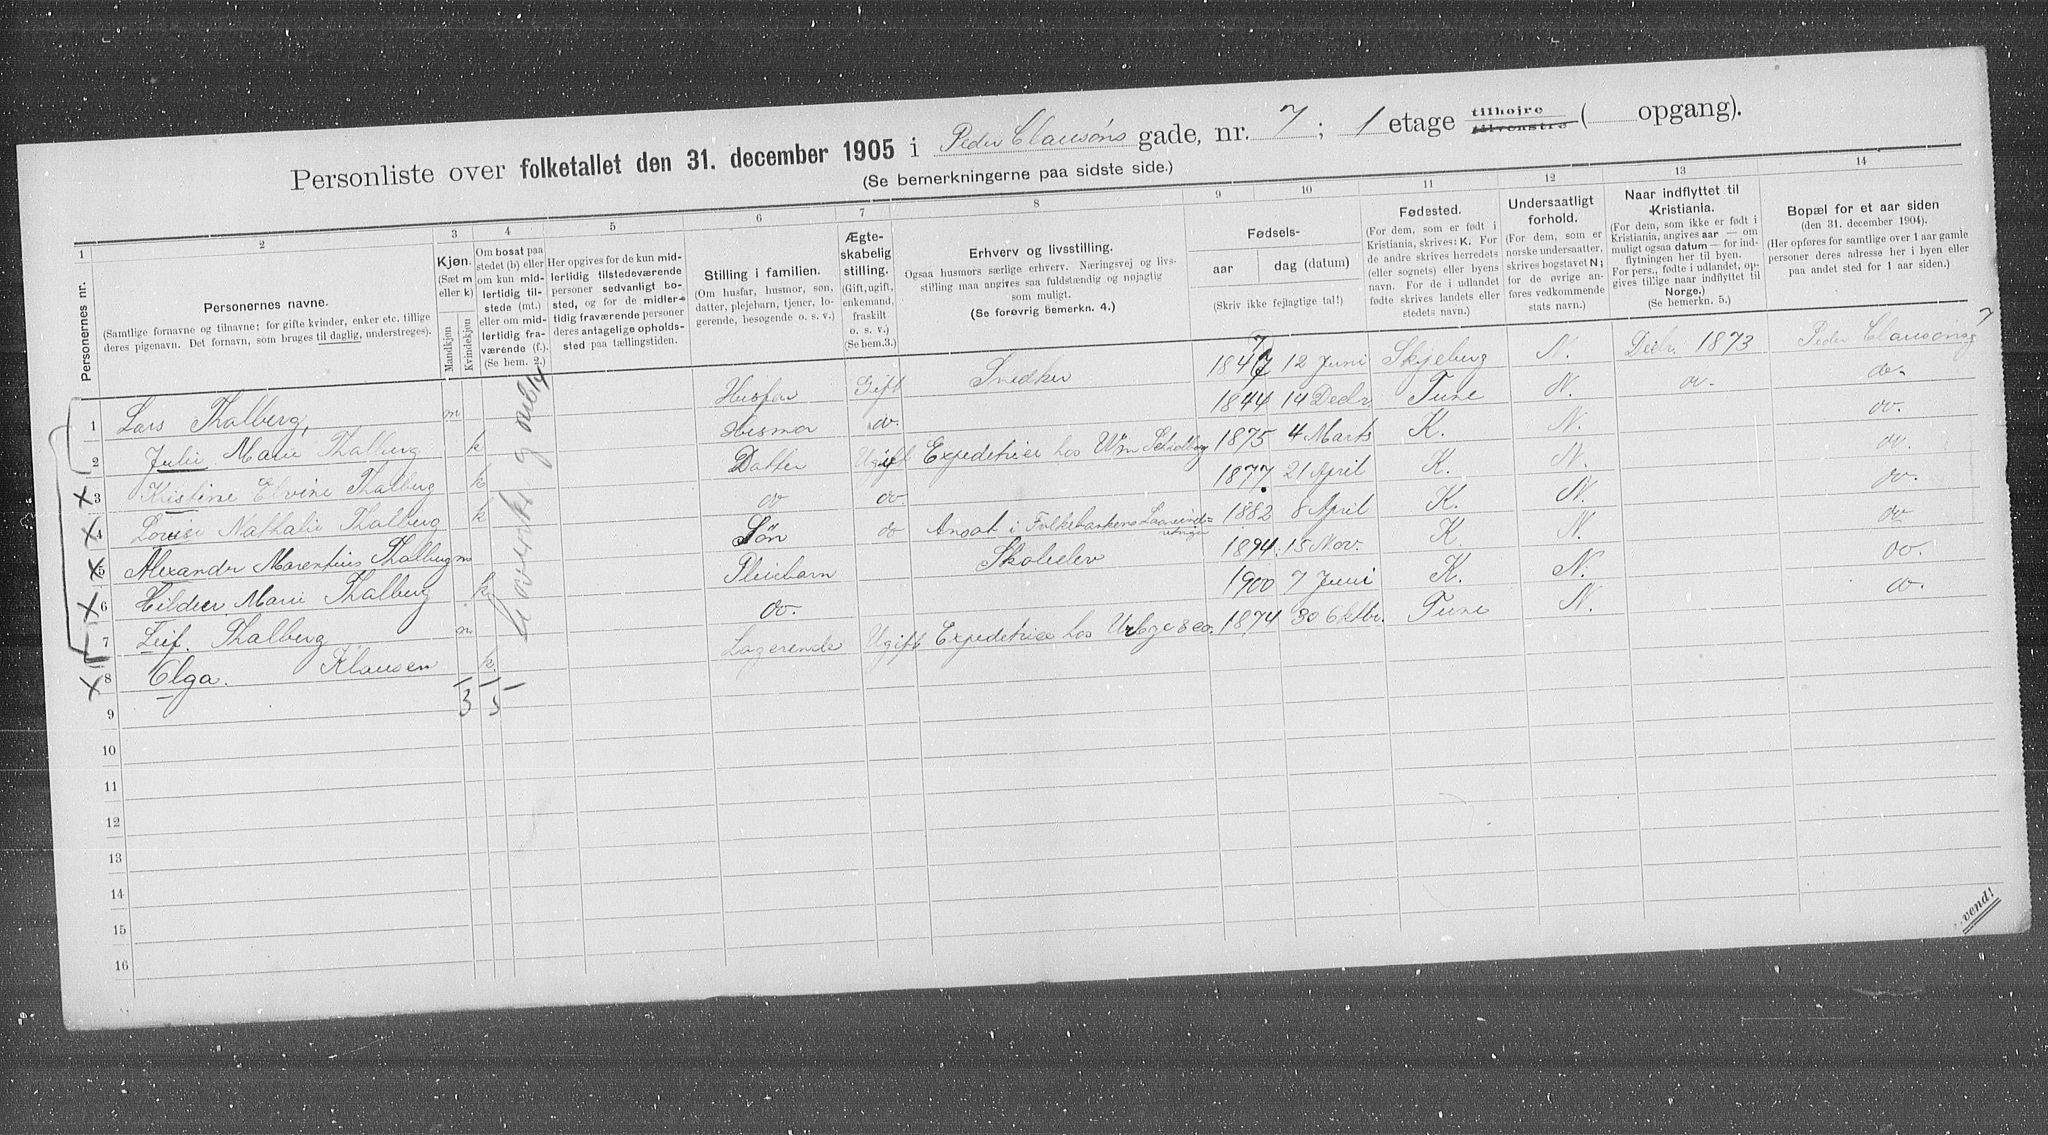 Personliste over folketallet den 31. december 1905 i Peder Clausøns gade, nr. 7; 1 etage tilhøjre tilvenstre ( opgang).
(Se bemerkningerne paa sidste side.)
1 2 3 4 5 6 7 8 9 10 11 12 13 14
Personernes nr.
Personernes navne.
(Samtlige fornavne og tilnavne; for gifte kvinder, enker etc. tillige deres pigenavn. Det fornavn, som bruges til daglig, understreges).
Kjøn.
(Sæt m eller k)
Mandkjøn
Kvindekjøn
Om bosat paa stedet (b) eller om kun midlertidig tilstede (mt.) eller om midlertidig fraværende (f.)
(Se bem. 2.)
Her opgives for de kun midlertidig tilstedeværende personer sedvanligt bosted, og for de midlertidig fraværende personer deres antagelige opholdssted paa tællingstiden.
Stilling i familien.
(Om husfar, husmor, søn, datter, plejebarn, tjener, logerende, besøgende o. s. v.)
Ægteskabelig stilling.
(Gift, ugift, enkemand, fraskilt o. s. v.)
(Se bem.3.)
Erhverv og livsstilling.
Ogsaa husmors særlige erhverv. Næringsvej og livsstilling maa angives saa fuldstændig og nøjagtig som muligt.
(Se forøvrig bemerkn. 4.)
Fødsels-
aar
dag (datum)
(Skriv ikke fejlagtige tal!)
Fødested.
(For dem, som er født i Kristiania, skrives: K. For de andre skrives herredets (eller sognets) eller byens navn. For de i udlandet fødte skrives landets eller stedets navn.)
Undersaatligt forhold.
(For dem, som er norske undersaatter, skrives bogstavet N; for de øvrige anføres vedkommende stats navn.)
Naar indflyttet til Kristiania.
(For dem, som ikke er født i Kristiania, angives aar — om muligt ogsaa datum — for indflytningen her til byen. For pers., fødte i udlandet, opgives tillige naar indflyttet til Norge.)
(Se bemerkn. 5.)
Bopæl for et aar siden
(den 31. december 1904).
(Her opføres for samtlige over 1 aar gamle personer deres adresse her i byen eller paa andet sted for 1 aar siden.)
1 Lars Thalberg, m Husfar Gift Snedker 1847 12 Juni Skjeberg N. Decbr. 1873 Peder Clausønsg 7
2 Julie Marie Thalberg k Husmor do. 1844 14 Decbr. Tune N. do.
3 Kristine Elvine Thalberg k Datter Ugift Expeditrise hos Wm 1875 4 Marts K. N. do.
4 Louise Nathalie Thalberg k do do 1877 21 April K. N. do.
5 Alexander Marentius Thalberg m Søn do Ansat i Folkebankens 1882 8 April K. N. do.
6 Marie Thalberg k Pleiebarn Skoleelev 1894 15 Nov. K. N. do
7 Leif. Thalberg m do. 1900 7 Juni K. N. do.
8 Olga. Klausen k Logerende Ugift Expeditrise hos 1874 30 Oktbr. Tune N. do.
3 5
9
10
11
12
13
14
15
16
vend!